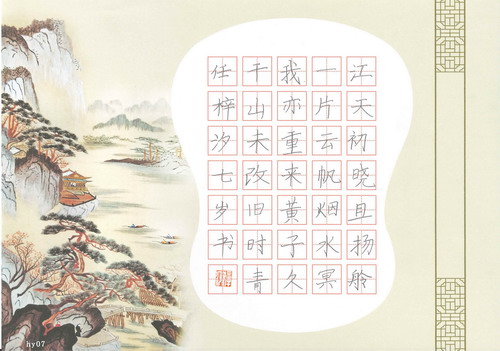 江天初晓且扬舲
一片云帆烟水冥
我亦重来黄子久
千山未改旧时青
任梓汐七岁书
hy07